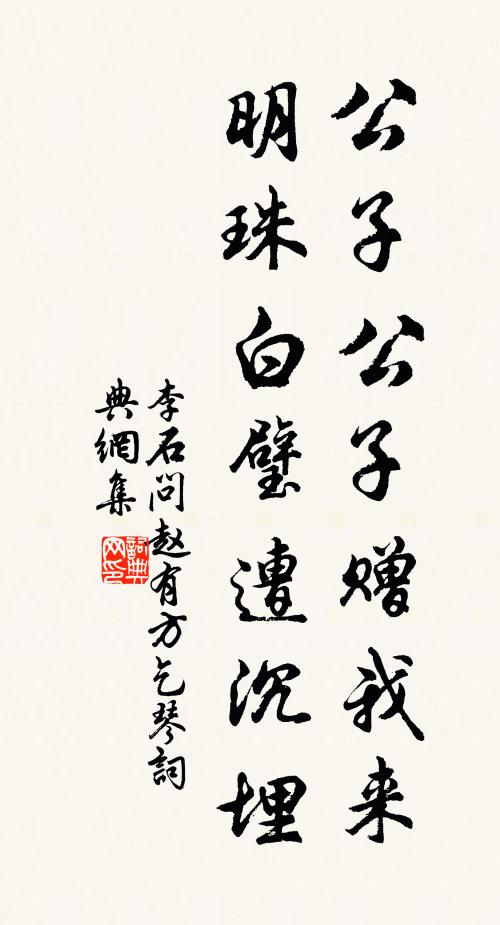 公子公子赠我来
明珠白璧遭沉埋
李石问赵有方乞琴詞
典網集
詞典网印